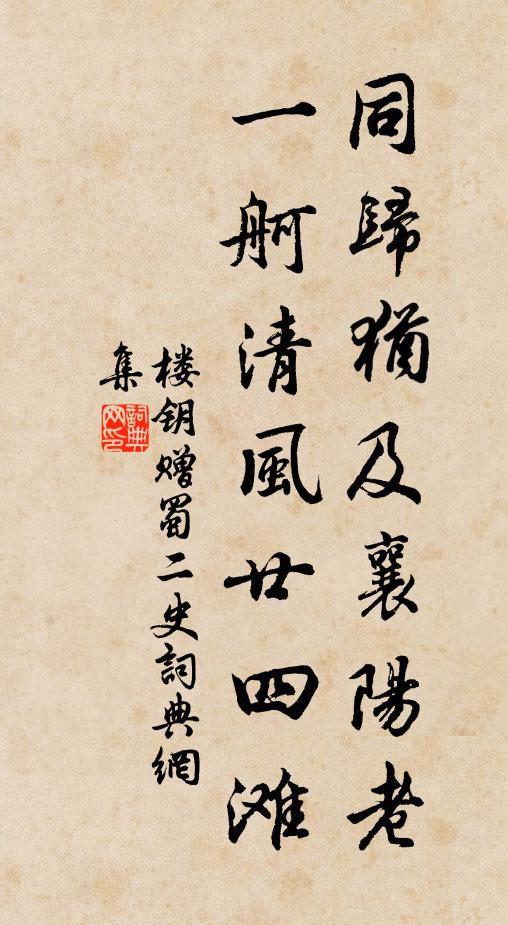 同歸猶及襄陽老
一舸清風廿四滩
楼钥赠蜀二史詞典網
集
詞典网印